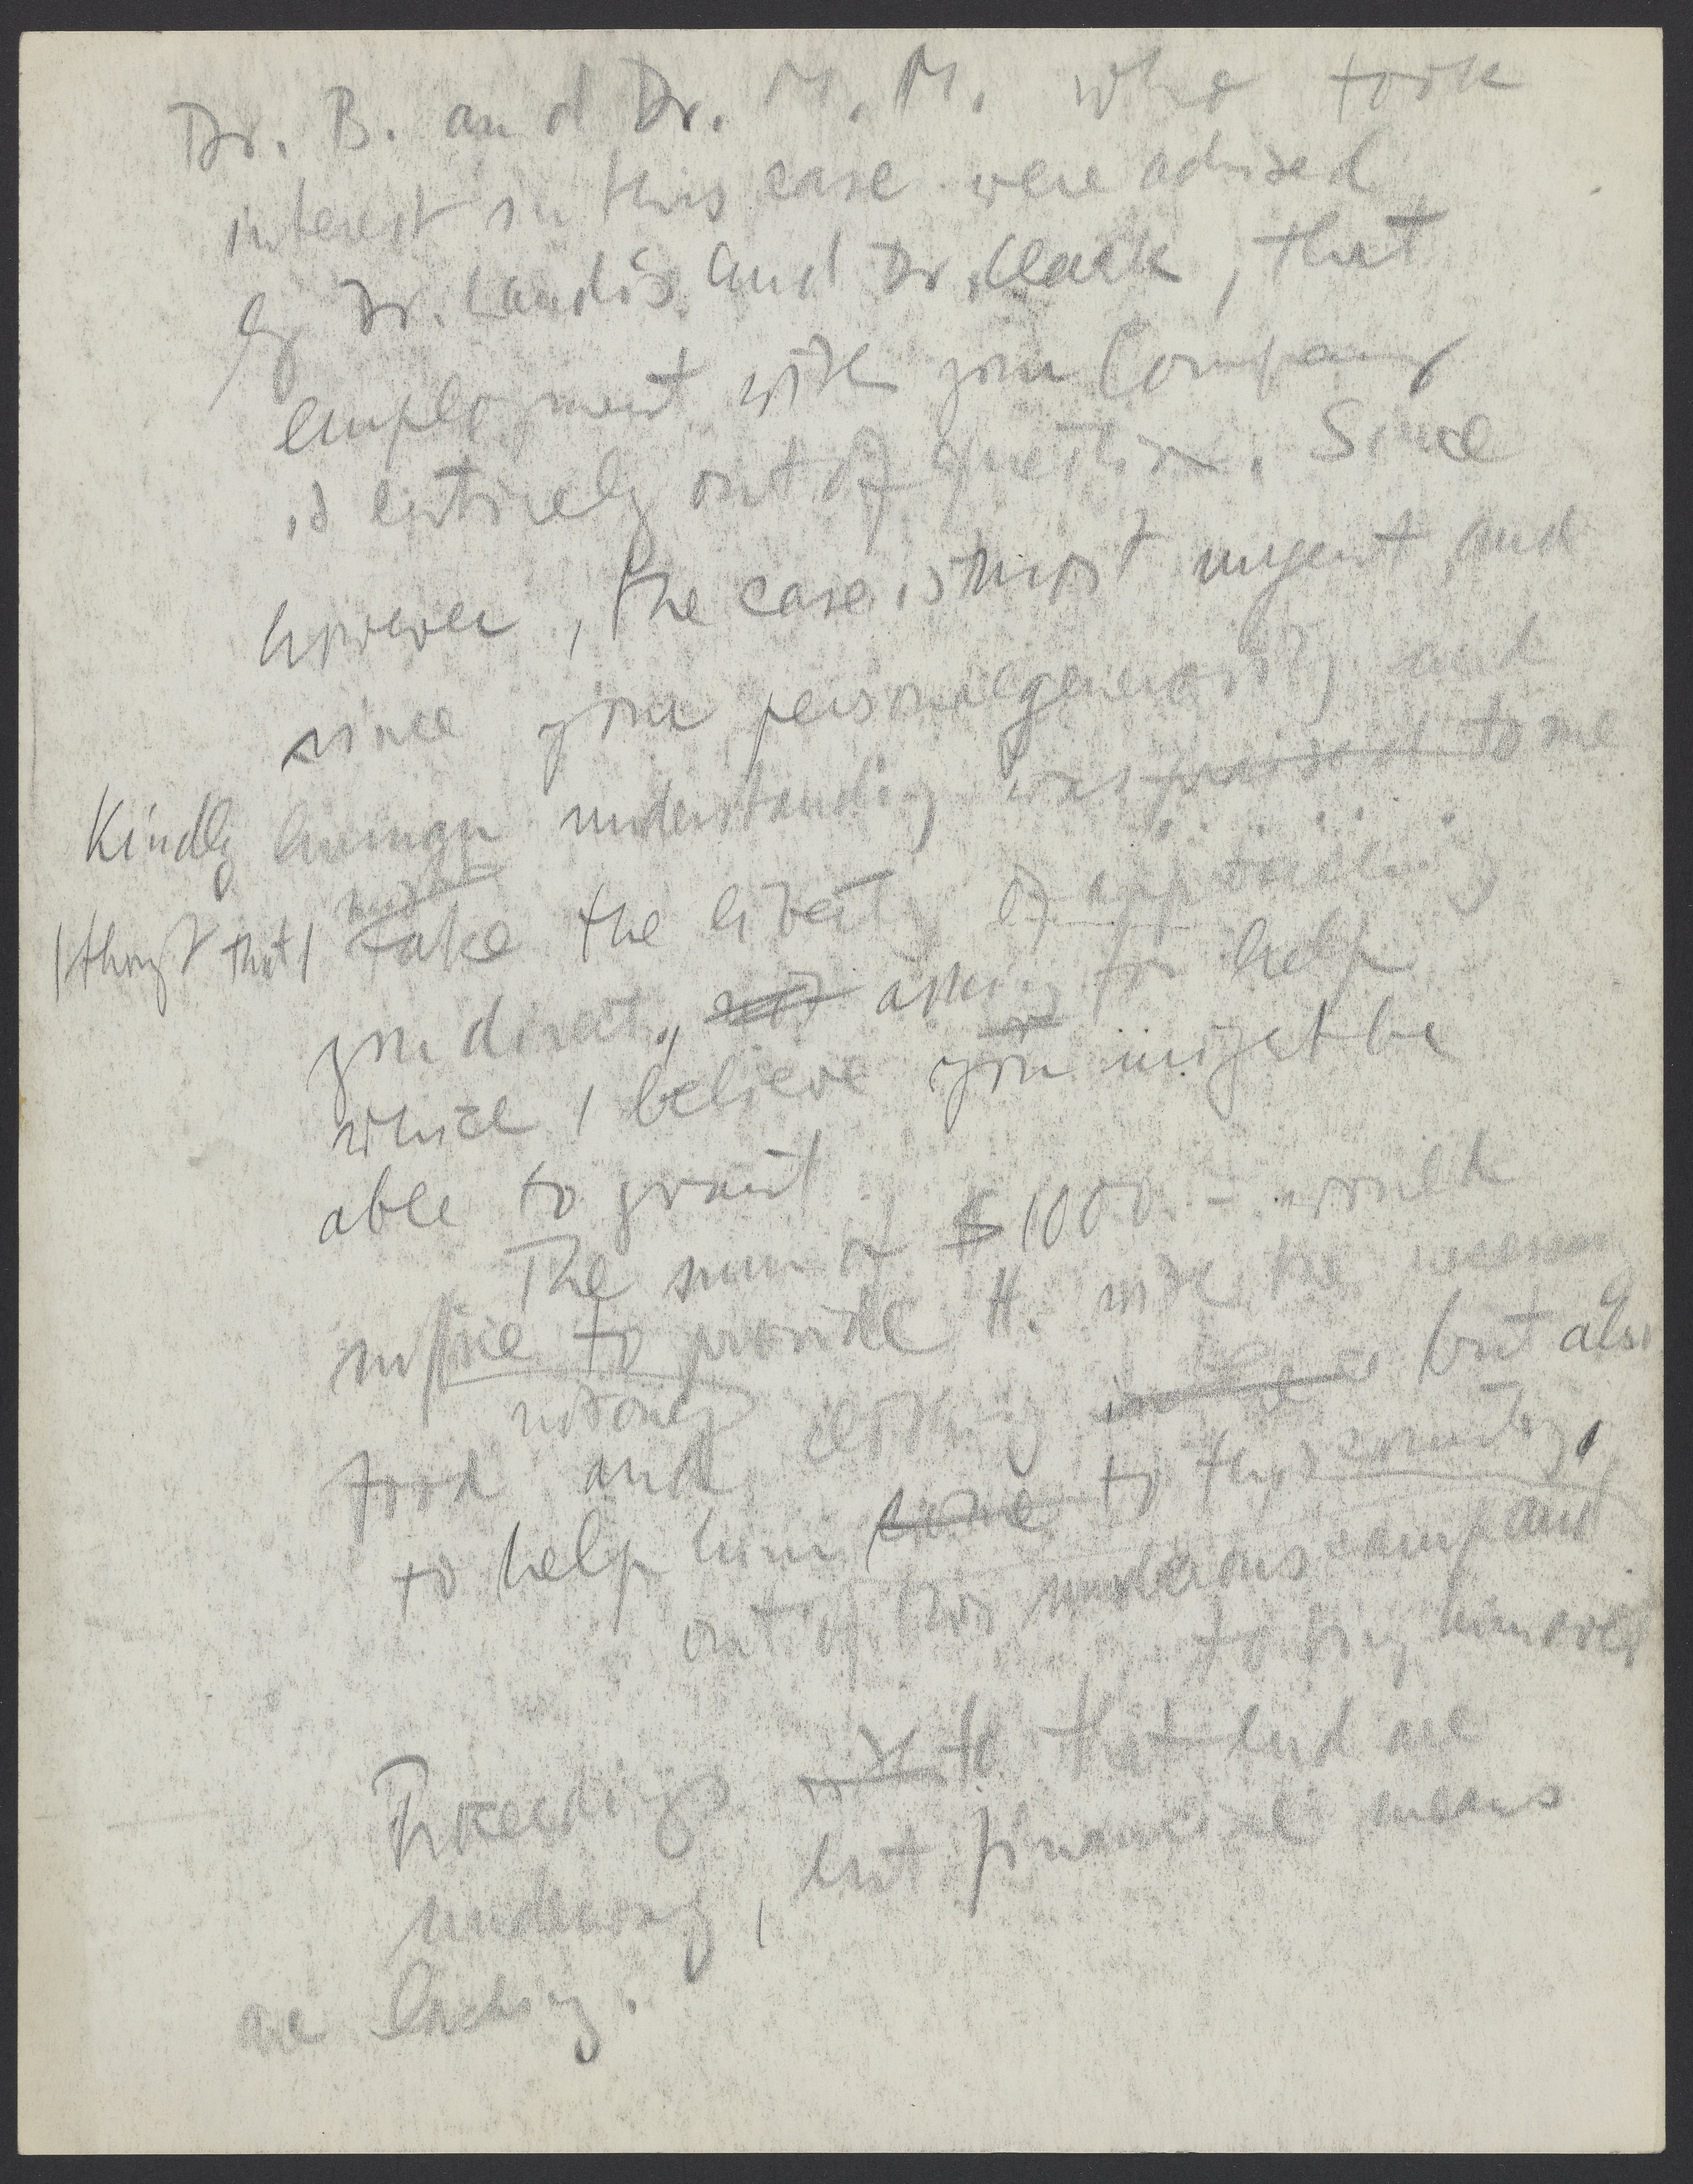 Dr. B. and Dr. M. M. who took
interest in this case were advised
by Dr. Landis and Dr. Clark, that
employment with your Company
is entirely out of question. Since
however, the case is most urgent and
since your personal generosity and
Kindly human understanding was praised to me
might
I thought that I take the liberty of approaching
you direct, asking for help
which I believe you might be
able to grant
The sum of $1000.- would
suffice to provide H. with the necessary
not only
food and clothing but also
to help him come to this country,
out of this murderous camp and
to bring him over
Proceedings to that end are
underway, but financial means
are lacking.